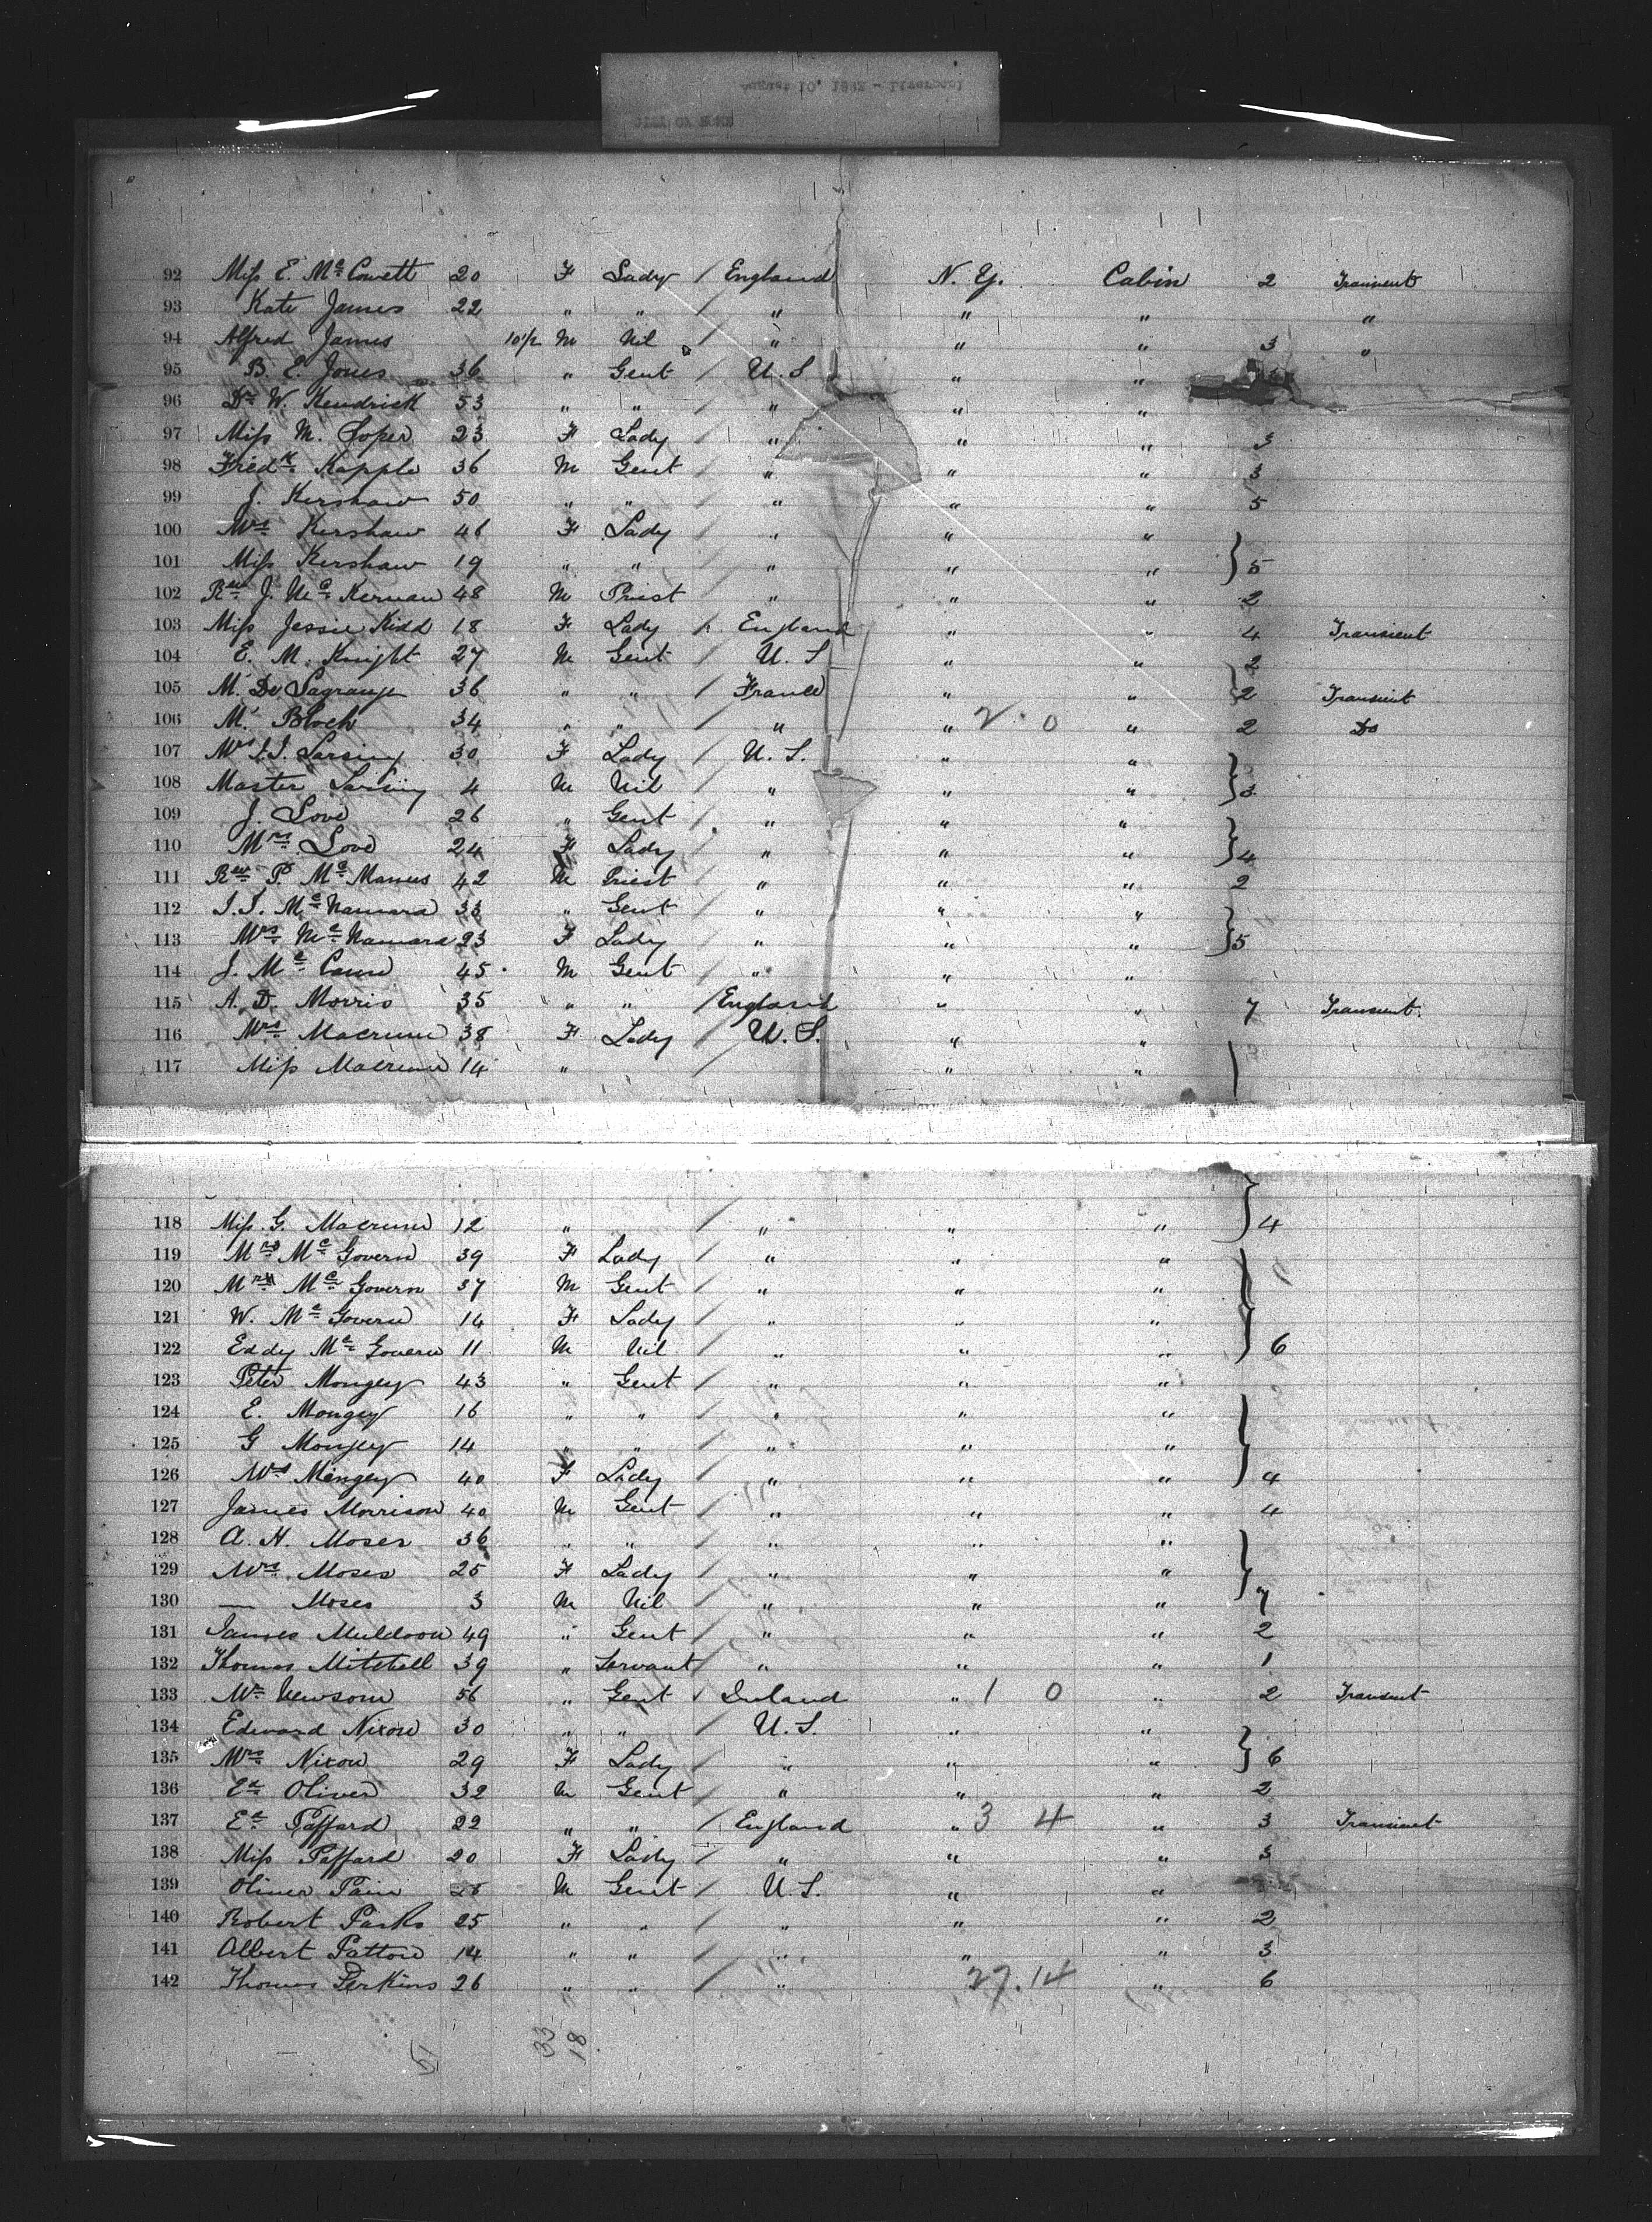 August 10, 1892 - Liverpool
92 Miss E. Mc Cowett 20 F Lady / England N. Y. Cabin 2 Transient
93 Kate James 22 " " / " " " "
94 Alfred James 10/12 M Nil / " " " 3 "
95 B. E. Jones 36 " Gent / U. S " "
96 Dr W. Kendrick 53 " " / " " "
97 Miss M. Loper 23 F Lady / " " " 3
98 Fredk Kapple 36 M Gent / " " " 3
99 J. Kershaw 50 " " / " " " 5
100 Mrs Kershaw 46 F Lady / " " "
101 Miss Kershaw 19 " " / " " " } 5
102 Rev J. Mc Kernan 48 M Priest / " " " 2
103 Miss Jessie Kidd 18 F Lady England " " 4 Transient
104 E. M. Knight 27 M Gent / U. S " " 2
105 M. De Lagrange 36 " " / France " " 2 Transient
106 M. Bloch 34 " " / " " 2 0 " 2 Do
107 Mrs 30 F Lady / U. S. " "
108 Master 4 M Nil / " " " } 3
109 J. Love 26 " Gent / " " "
110 Mrs Love 24 F Lady / " " " } 4
111 Rev P. Mc Manus 42 M Priest / " " " 2
112 Mc Namara 33 " Gent / " " "
113 Mrs Mc Namara 23 F Lady / " " " } 5
114 J. Mc 45 M Gent / " " "
115 A. D. Morris 35 " " / England " " 7 Transient
116 Mrs Macrum 38 F Lady / U. S. " "
117 Miss Macrum 14 " / " "
118 Miss G. Macrum 12 " / " " " } 4
119 Mrs Mc Govern 39 F Lady / " " "
120 Mc Govern 37 M Gent / " " "
121 W. Mc Govern 14 F Lady / " " "
122 Eddy Mc Govern 11 M Nil / " " " } 6
123 Peter Mongey 43 " Gent / " " "
124 E. Mongey 16 " " / " " "
125 G Mongey 14 " " / " " "
126 Mrs Mongey 40 F Lady / " " " } 4
127 James Morrison 40 M Gent / " " " 4
128 A. H. Moses 36 " " / " " "
129 Mrs Moses 25 F Lady / " " "
130 — Moses 3 M Nil / " " " } 7
131 James Muldoon 49 " Gent / " " " 2
132 Thomas Mitchell 39 " Servant / " " " 1
133 Mr Newsom 56 " Gent Ireland " 1 0 " 2 Transient
134 Edward Nixon 30 " " / U. S. " "
135 Mrs Nixon 29 F Lady / " " " } 6
136 Oliver 32 M Gent / " " " 2
137 Paffard 22 " " / England " 3 4 " 3 Transient
138 Miss Paffard 20 F Lady / " " " 3
139 Oliver Pain M Gent / U. S. " "
140 Robert Parks 25 " " / " " " 2
141 Albert Patton 14 " " / " " " 3
142 Thomas Perkins 26 " " / " 27.14 " 6
33
18
51